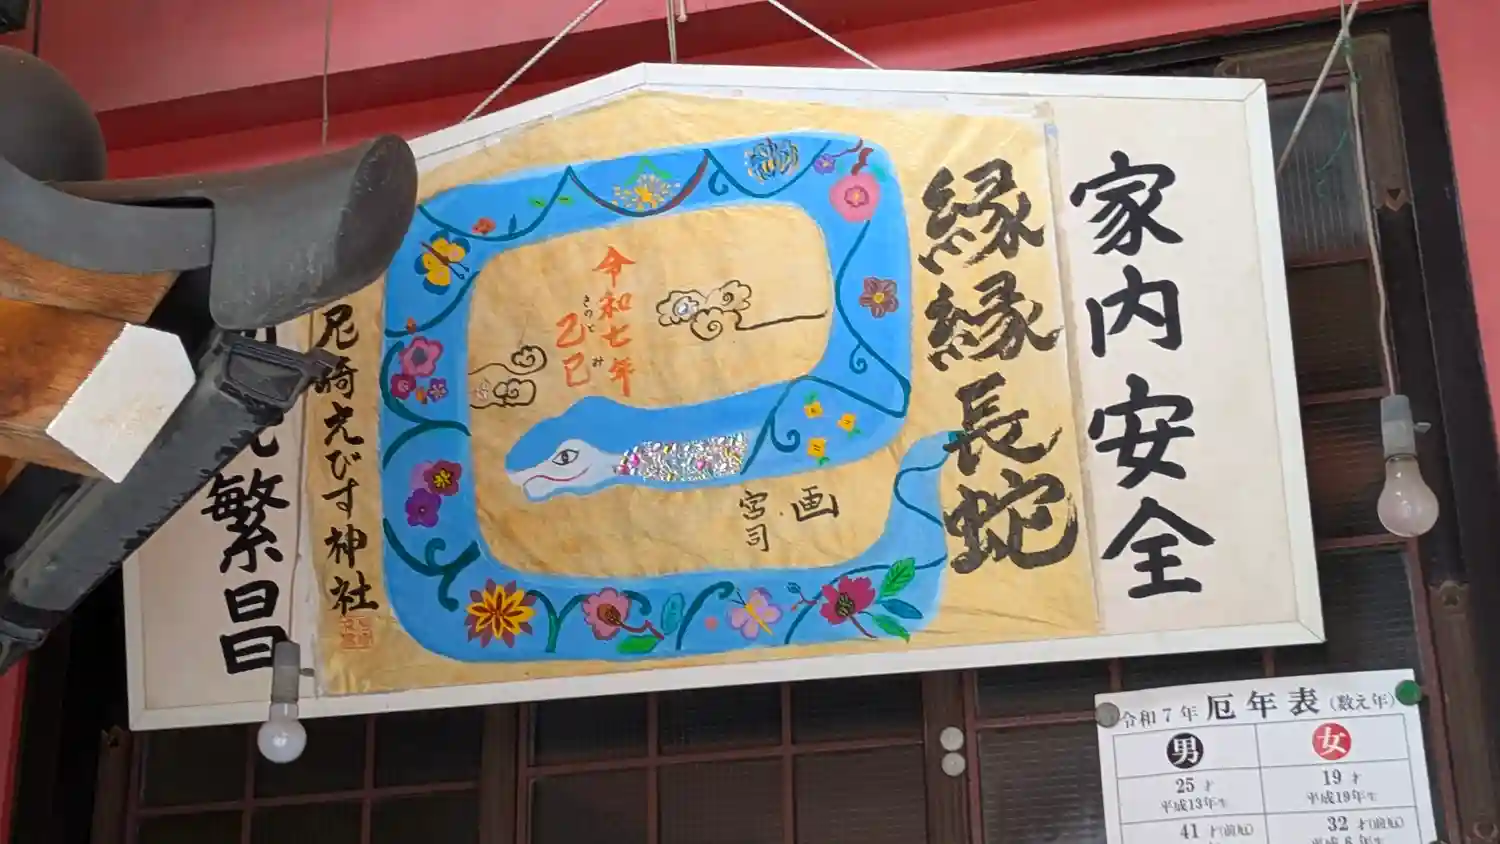 家内安全
縁縁長蛇
令和七年
乙巳
きのと
み
画
宮司
尼崎えびす神社
繁昌
令和7年 厄年表(数え年)
男
女
25才
19才
平成13年生
平成19年生
41才(前厄)
32才(前厄)